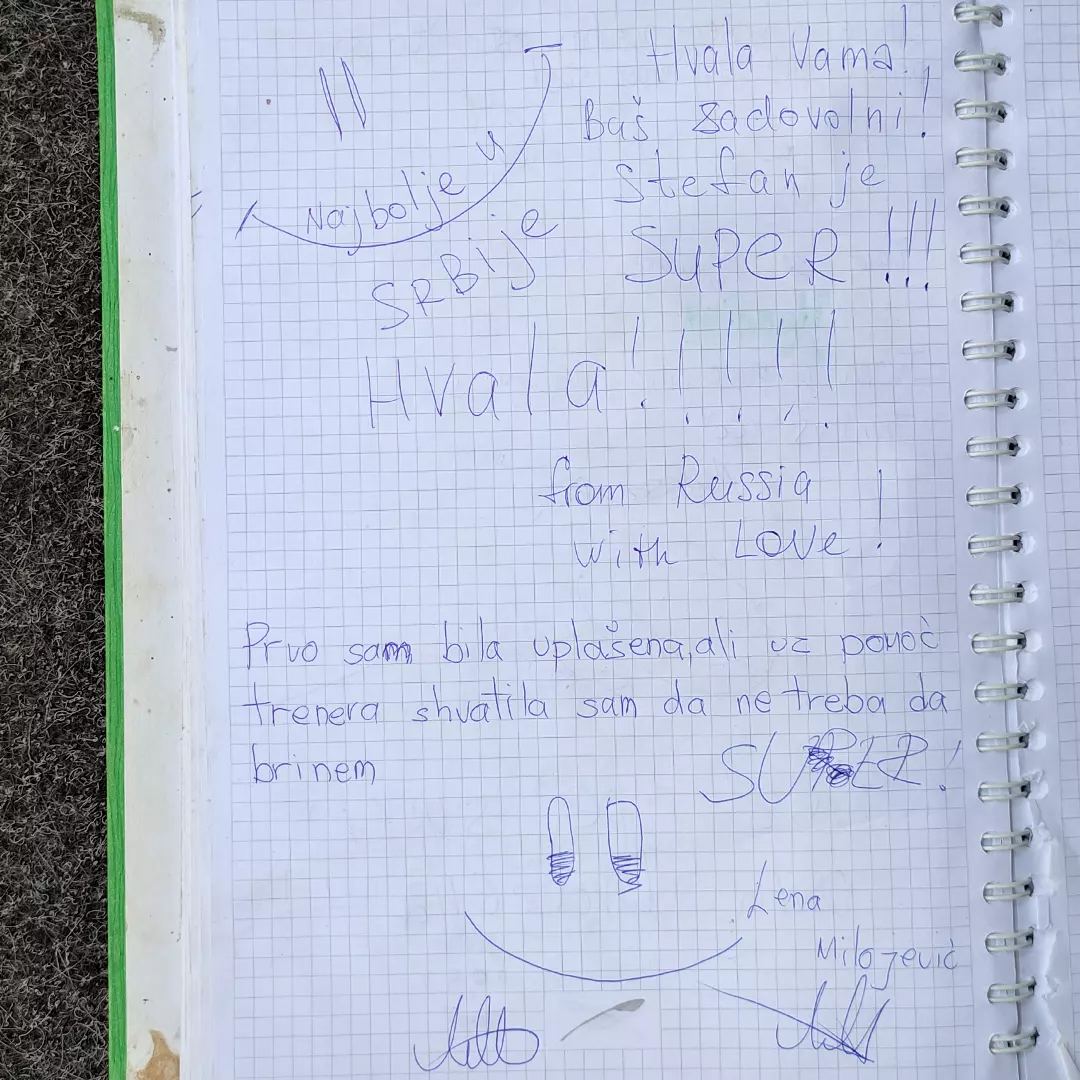 Hvala Vama!
Baš zadovolni!
Stefan je
SUPER!!!
Najbolje u
SRBije
Hvala!!!!!
from Russia
with Love!
Prvo sam bila uplašena, ali uz pomoć
trenera shvatila sam da ne treba da
brinem
SUPER!
Lena
Milojević